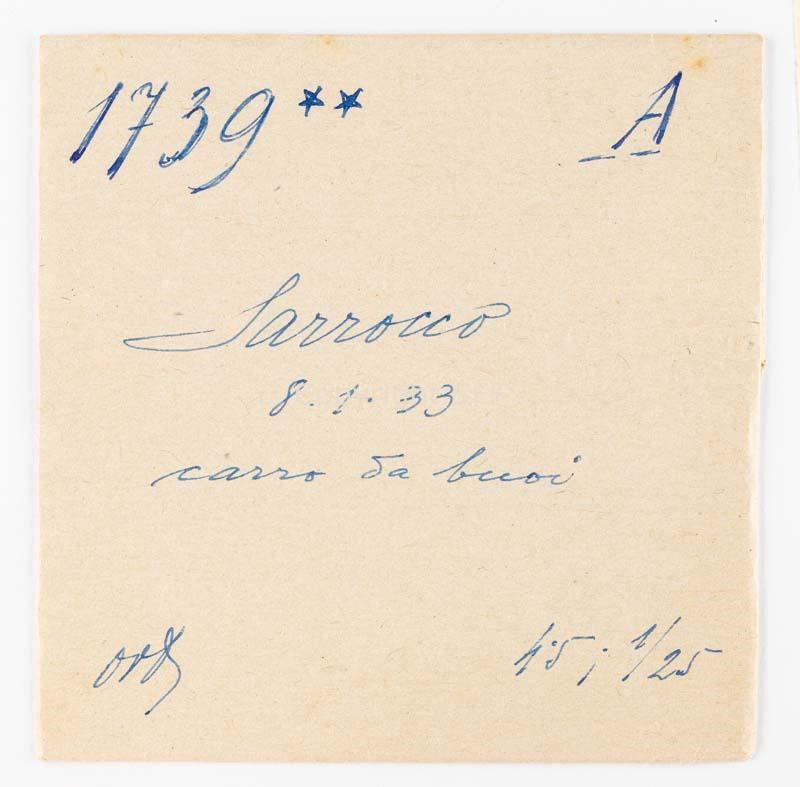 1739 ** A
Sarrocco
8.1.33
carro da buoi
ord 4.5; 1/25